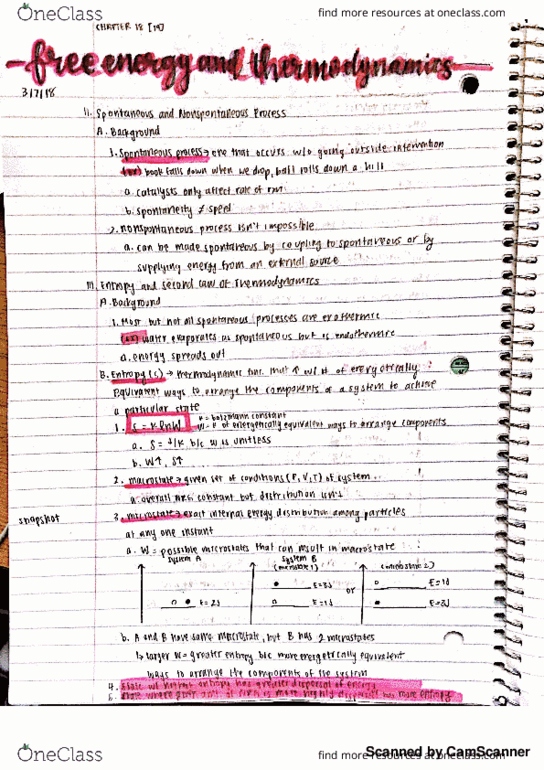 OneClass
find more resources at oneclass.com
CHAPTER 18 [19]
free energy and thermodynamics
3/7/18
II. Spontaneous and Nonspontaneous Process
A. Background
1. Spontaneous process → one that occurs w/o going outside intervention
(ex) book falls down when we drop, ball rolls down a hill
a. catalysts only affect rate of rxn
b. spontaneity ≠ speed
2. nonspontaneous process isn't impossible
a. can be made spontaneous by coupling to spontaneous or by
supplying energy from an external source
III. Entropy and second law of Thermodynamics
A. Background
1. Most but not all spontaneous processes are exothermic
(ex) water evaporates is spontaneous but is endothermic
a. energy spreads out
B. Entropy (S) → thermodynamic func. that ↑ w/ # of energetically
Equivalent ways to arrange the components of a system to achieve
a particular state
1. S = k ln W
k = boltzmann constant
W = # of energetically equivalent ways to arrange components
a. S = J/K b/c W is unitless
b. W↑, S↑
2. macrostate → given set of conditions (P, V, T) of system
a. overall constant but distribution isn't
snapshot
3. microstate → exact internal energy distribution among particles
at any one instant
a. W = possible microstates that can result in macrostate
System A
System B
(microstate 1)
(microstate 2)
E=2J
E=3J
E=1J
or
E=1J
E=2J
b. A and B have same macrostate, but B has 2 microstates
↳ larger W = greater entropy b/c more energetically equivalent
ways to arrange the components of the system
4. State w/ highest entropy has greatest dispersal of energy
5. State where given amt of is more highly dispersed has more entropy
OneClass
find more resources at oneclass.com
Scanned by CamScanner